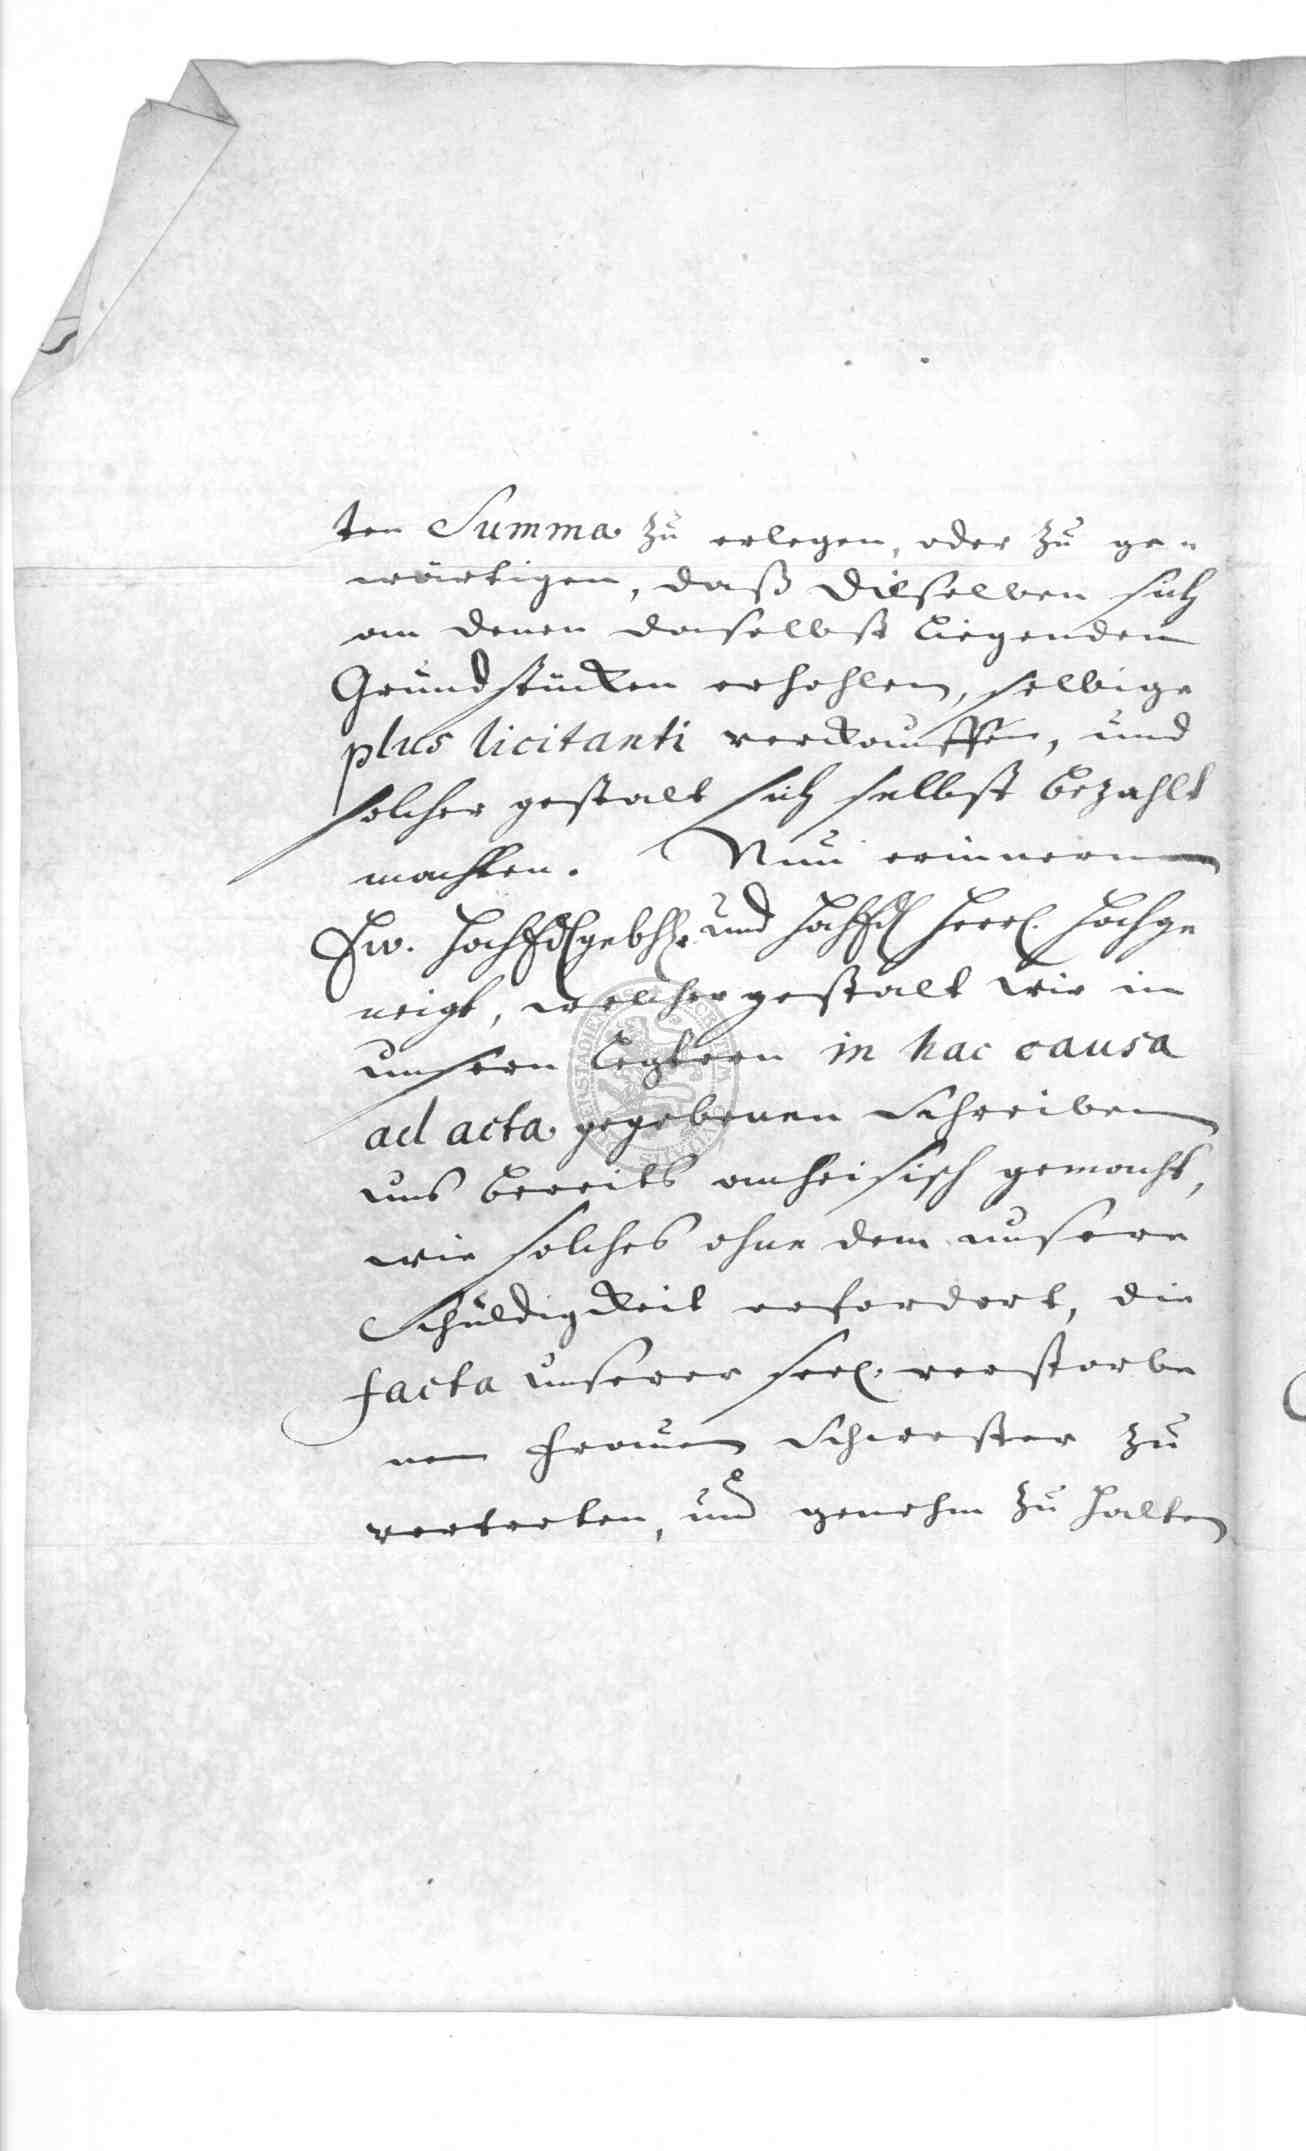 ten Summa zu erlegen, oder zu ge-
wärtigen, daß dieselben sich
an denen daselbst liegenden
Grundstücken erhohlen, selbige
plus licitanti verkauffen, und
solcher gestalt sich selbst bezahlt
machten. Nun erinnern
Ew. und Herrl. hochge
neigt, welcher gestalt wir in
unsern letztern in hac causa
ad acta gegebenen Schreiben
uns bereits anheischich gemacht,
wie solches ohne dem unsere
Schuldigkeit erfordert, die
facta unserer seel. verstorbe
nen Frauen Schwester zu
vertreten, und genehm zu halten